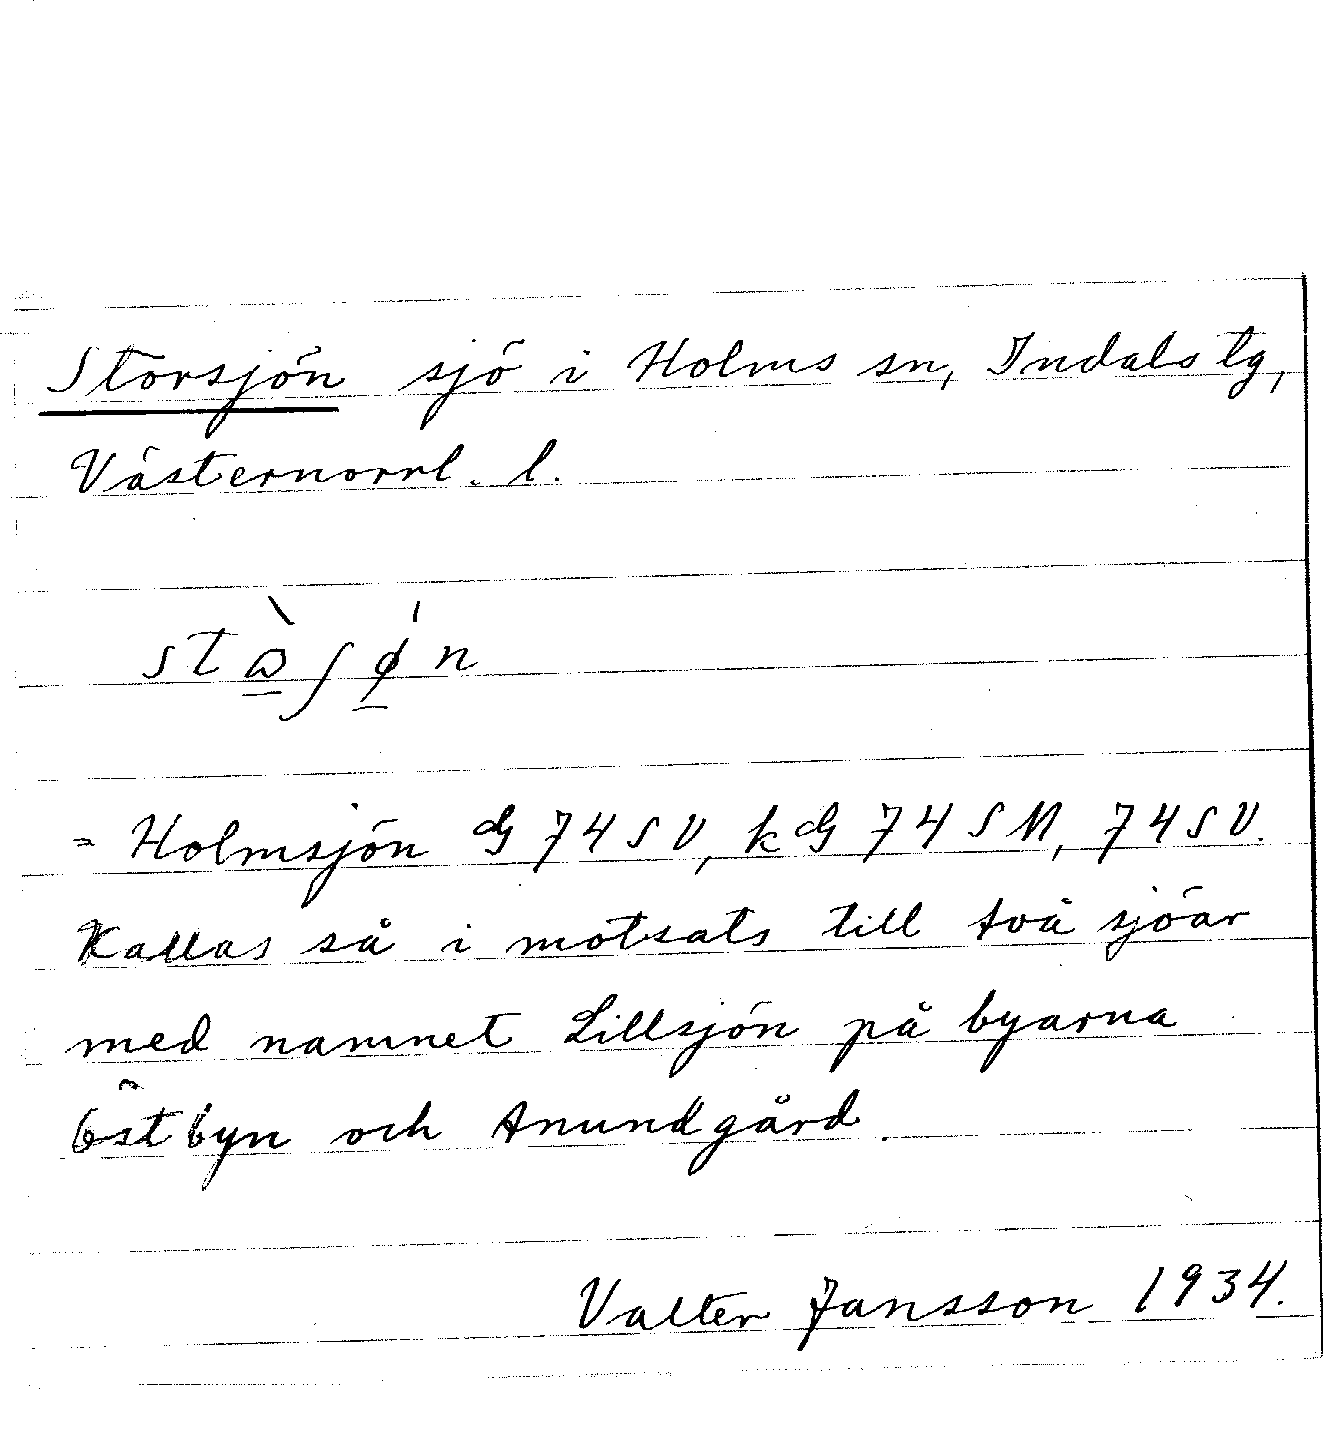 Storsjön sjö i Holms sn, Indals tg,
Västernorrl. l.
= Holmsjön G 74 SV, kG 74 SM, 74 SV.
Kallas så i motsats till två sjöar
med namnet Lillsjön på byarna
Östbyn och Anundgård.
Valter Jansson 1934.